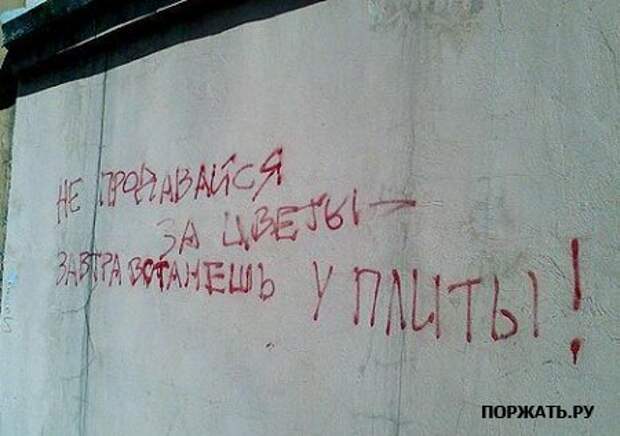 НЕ ПРОДАВАЙСЯ
ЗА ЦВЕТЫ —
ЗАВТРА ВСТАНЕШЬ У ПЛИТЫ!
ПОРЖАТЬ.РУ